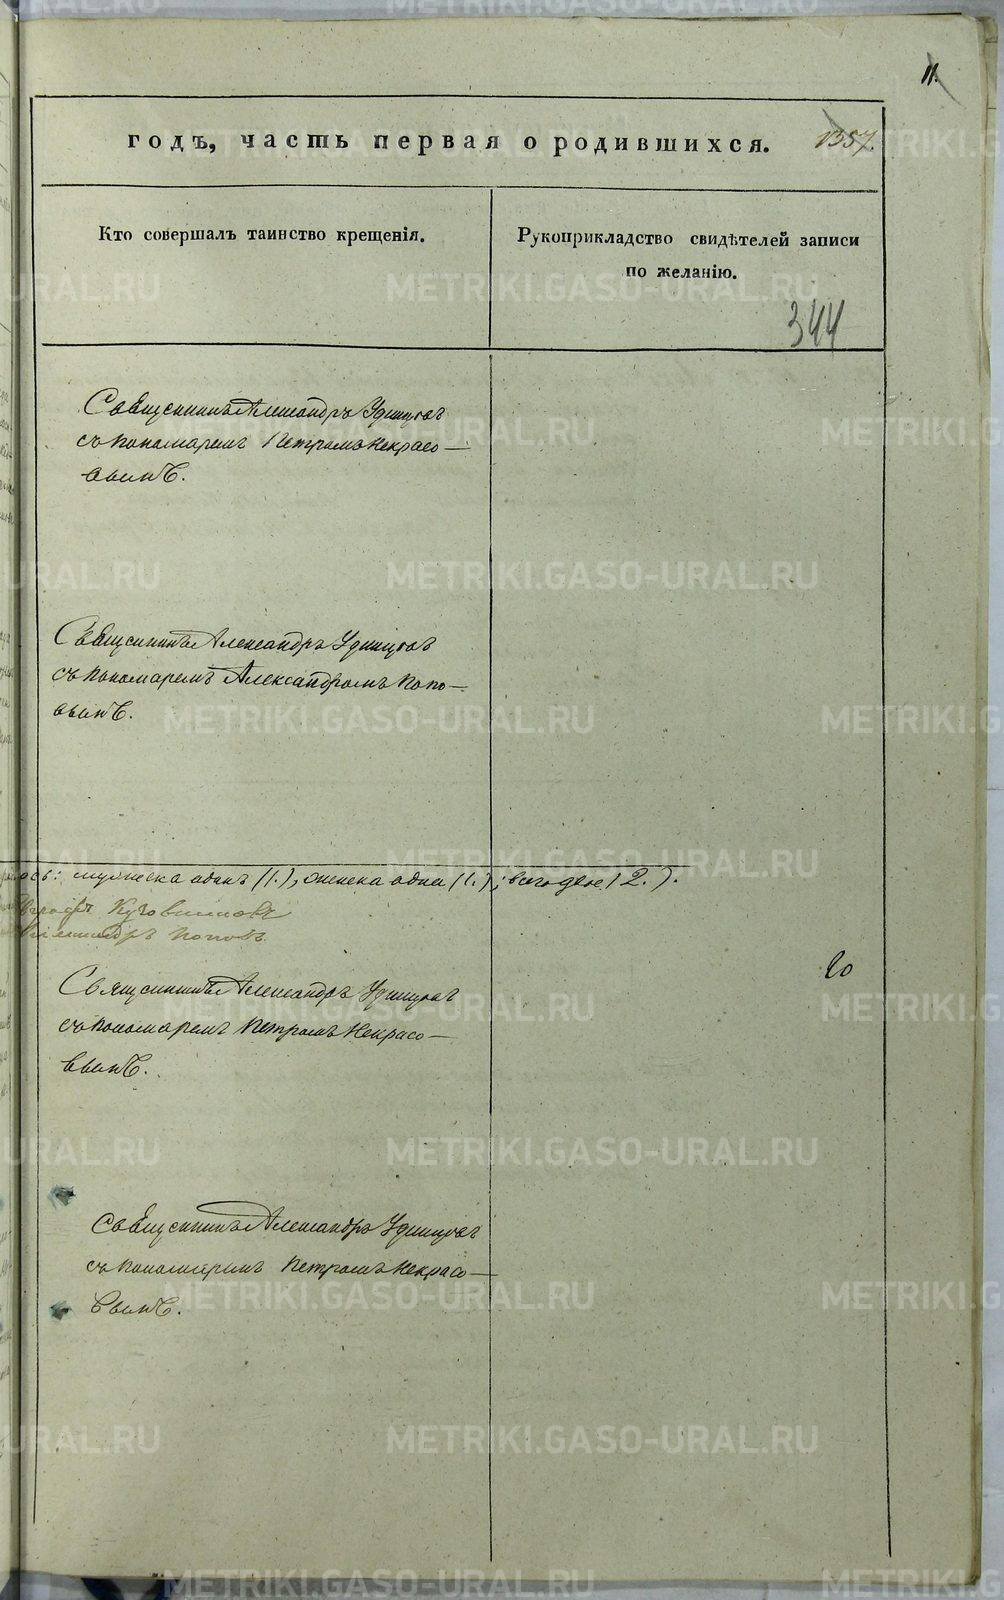 11.
годъ, часть первая о родившихся. 1357.
Кто совершалъ таинство крещенія.
Рукоприкладство свидѣтелей записи
по желанію.
344
Священникъ Александръ Удинцовъ
съ пономаремъ Петромъ Некрасо—
вымъ.
Священникъ Александръ Удинцовъ
съ пономаремъ Александромъ Попо—
вымъ.
мужеска одинъ (1.), женска одна (1.); всего двое (2.).
Александръ Поповъ.
20
Священникъ Александръ Удинцовъ
съ пономаремъ Петромъ Некрасо—
вымъ.
Священникъ Александръ Удинцовъ
съ пономаремъ Петромъ Некрасо—
вымъ.
METRIKI.GASO-URAL.RU